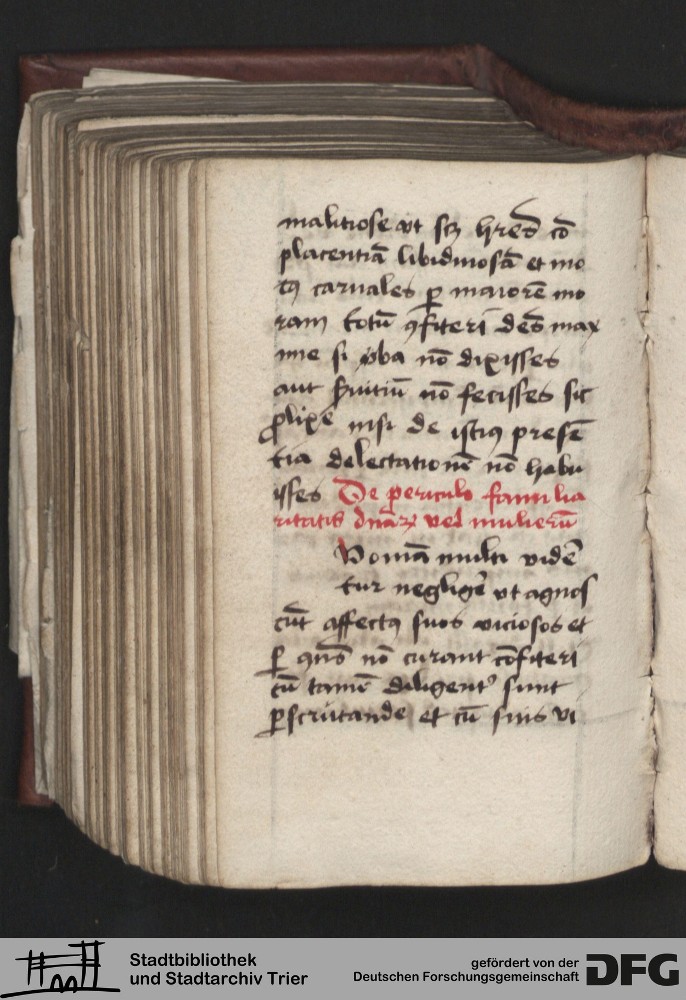 malitiose vt scꝫ hr̄es cō
placentiā libidinosā et mo
tꝰ carnales ꝑ maiorē mo
ram totū ꝯfiteri des max
ime si v̄ba nō dixisses
aut nō fecisses sic
ꝓlixe nisi de istiꝰ presē
tia delectationē nō habu
isses De periculo familia
ritatis dn̄aꝝ vel mulierū
multi vidē
tur neglige̅ vt agnos
cāt affectꝰ suos viciosos et
ꝑ ꝯn̄s nō curant cōfiteri
cū tamē diligent᷑ sunt
ꝑscrutande et cū suis vi
Stadtbibliothek
und Stadtarchiv Trier
gefördert von der
Deutschen Forschungsgemeinschaft
DFG